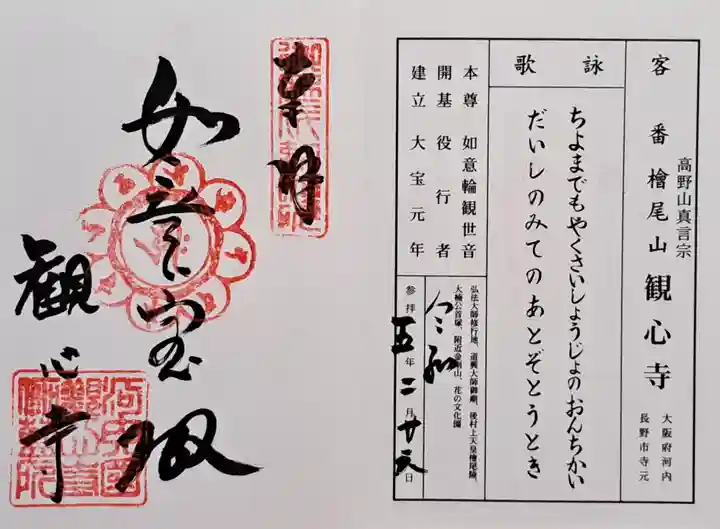 客番 檜尾山 観心寺
高野山真言宗
大阪府河内
長野市寺元
詠歌
ちよまでもやくさいしょうじょのおんちかい
だいしのみてのあとぞとうとき
本尊 如意輪観世音
開基 役行者
建立 大宝元年
弘法大師修行地、道興大師御廟、後村上天皇檜尾陵、
大楠公首塚、附近金剛山、花の文化園
令和
参拝 五年 二月 廿六日
奉拝
如意宝殿
観心寺